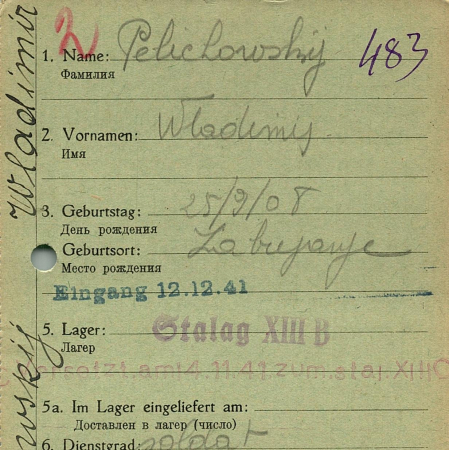 2
1. Name: Pelichowskij 483
Фамилия
2. Vornamen: Wladimij
Имя
3. Geburtstag: 25/9/08
День рождения
Geburtsort:
Место рождения
Eingang 12.12.41
5. Lager: Stalag XIII B
Лагер
ersetzt am 4.11.41 zum stal XIII C
5a. Im Lager eingeliefert am:
Доставлен в лагер (число)
6. Dienstgrad: soldat
wskij Wladimir